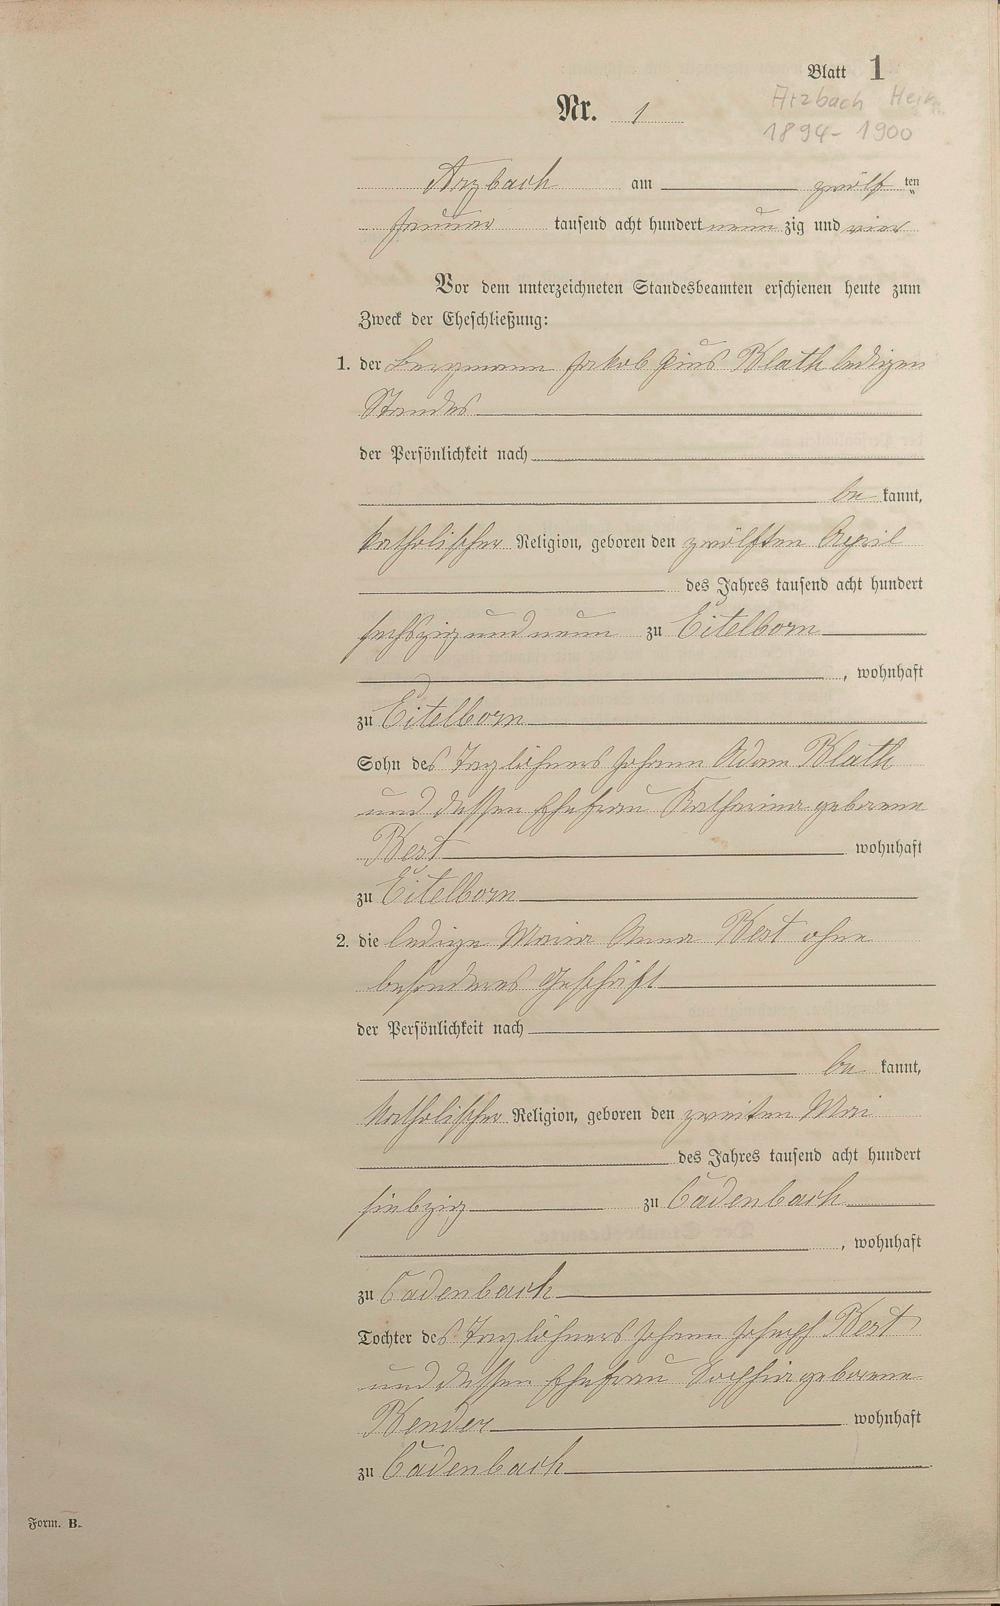 Blatt 1
Nr. 1
Arzbach Heir.
1894 - 1900
Arzbach am zwölf ten
Januar tausend acht hundert neun zig und vier
Vor dem unterzeichneten Standesbeamten erschienen heute zum
Zweck der Eheschließung:
1. der Bergmann Jakob Pius Klath ledigen
Standes
der Persönlichkeit nach
be kannt,
katholischer Religion, geboren den zwölften April
des Jahres tausend acht hundert
sechszig und neun zu Eitelborn
, wohnhaft
zu Eitelborn
Sohn des Taglöhners Johann Adam Klath
und dessen Ehefrau Katharina geborene
Kert wohnhaft
zu Eitelborn
2. die ledige Maria Anna Kert ohne
besonderes Geschäft
der Persönlichkeit nach
be kannt,
katholischer Religion, geboren den zweiten Mai
des Jahres tausend acht hundert
siebzig zu Cadenbach
, wohnhaft
zu Cadenbach
Tochter des Taglöhners Johann Joseph Kert
und dessen Ehefrau Sophia geborene
wohnhaft
zu Cadenbach
Form. B.